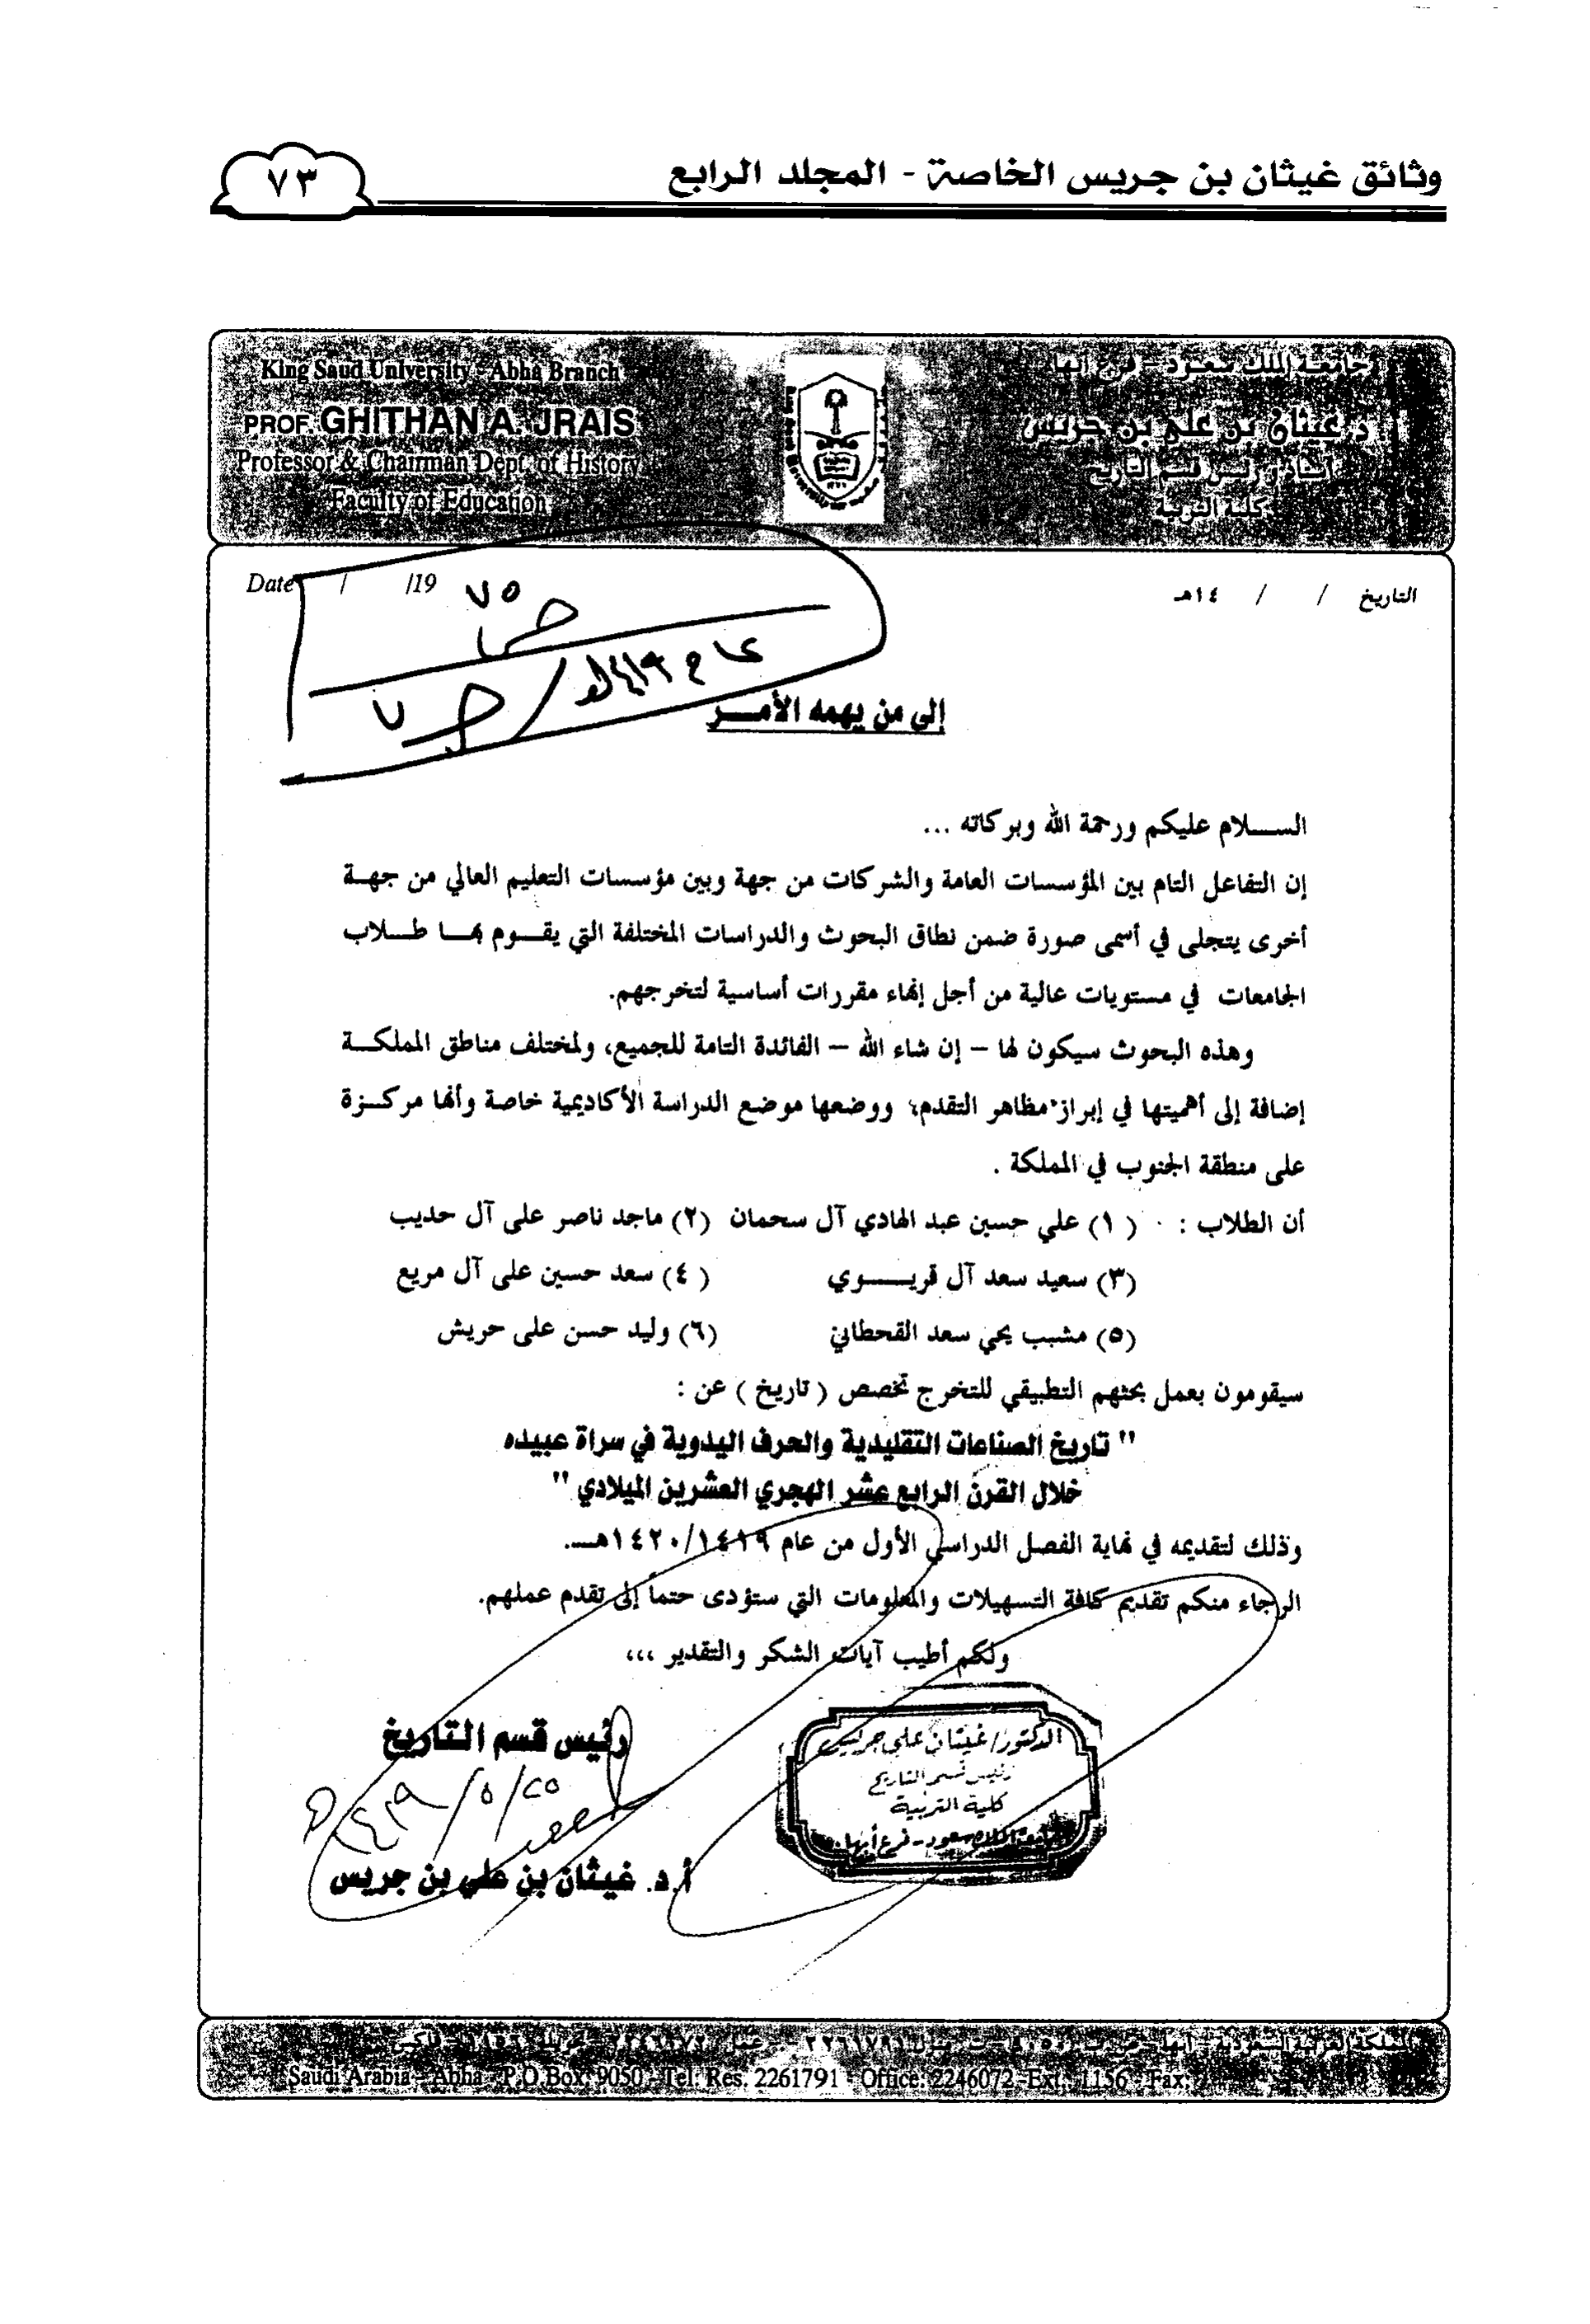 وثائق غيثان بن جريس الخاصة - المجلد الرابع
٧٣
King Saud University - Abha Branch
PROF. GHITHAN A. JRAIS
Professor & Chairman Dept. of History
Faculty of Education
جامعة الملك سعود - فرع أبها
د. غيثان بن علي بن جريس
أستاذ ورئيس قسم التاريخ
كلية التربية
Date / /19
التاريخ / / ١٤هـ
ص ٧٥
عام ١٤١٩هـ / جـ ٧
إلى من يهمه الأمـــر
الســـلام عليكم ورحمة الله وبركاته ...
إن التفاعل التام بين المؤسسات العامة والشركات من جهة وبين مؤسسات التعليم العالي من جهـة
أخرى يتجلى في أسمى صورة ضمن نطاق البحوث والدراسات المختلفة التي يقـــوم بهـــا طـــلاب
الجامعات في مستويات عالية من أجل إنهاء مقررات أساسية لتخرجهم.
وهذه البحوث سيكون لها – إن شاء الله – الفائدة التامة للجميع، ولمختلف مناطق المملكـــة
إضافة إلى أهميتها في إبراز مظاهر التقدم؛ ووضعها موضع الدراسة الأكاديمية خاصة وأنها مركـــزة
على منطقة الجنوب في المملكة .
أن الطلاب : (١) علي حسين عبد الهادي آل سحمان (٢) ماجد ناصر على آل حديب
(٣) سعيد سعد آل قريـــوي (٤) سعد حسين على آل مريع
(٥) مشبب يحي سعد القحطاني (٦) وليد حسن على حريش
سيقومون بعمل بحثهم التطبيقي للتخرج تخصص ( تاريخ ) عن :
" تاريخ الصناعات التقليدية والحرف اليدوية في سراة عبيده
خلال القرن الرابع عشر الهجري العشرين الميلادي "
وذلك لتقديمه في نهاية الفصل الدراسي الأول من عام ١٤٢٠/١٤١٩هـــ.
الرجاء منكم تقديم كافة التسهيلات والمعلومات التي ستؤدى حتماً إلى تقدم عملهم.
ولكم أطيب آيات الشكر والتقدير ،،،
رئيس قسم التاريخ
١٤١٩/٥/٢٥هـ
أ.د. غيثان بن علي بن جريس
الدكتور/ غيثان علي جريس
رئيس قسم التاريخ
كلية التربية
جامعة الملك سعود - فرع أبها
المملكة العربية السعودية - أبها
Saudi Arabia - Abha - P.O.Box. 9050 - Tel: Res. 2261791 - Office: 2246072 - Ext.: 1156 - Fax: